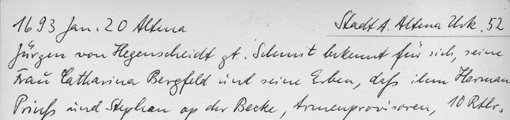 1693 Jan. 20 Altena Stadt A. Altena Urk. 52
Jürgen von Hegenscheidt gt. Schmit bekennt für sich, seine
Frau Catharina Bergfeld und seine Erben, daß ihm Herman
Prinß und Stephan op der Becke, Armenprovisoren, 10 Rtlr.